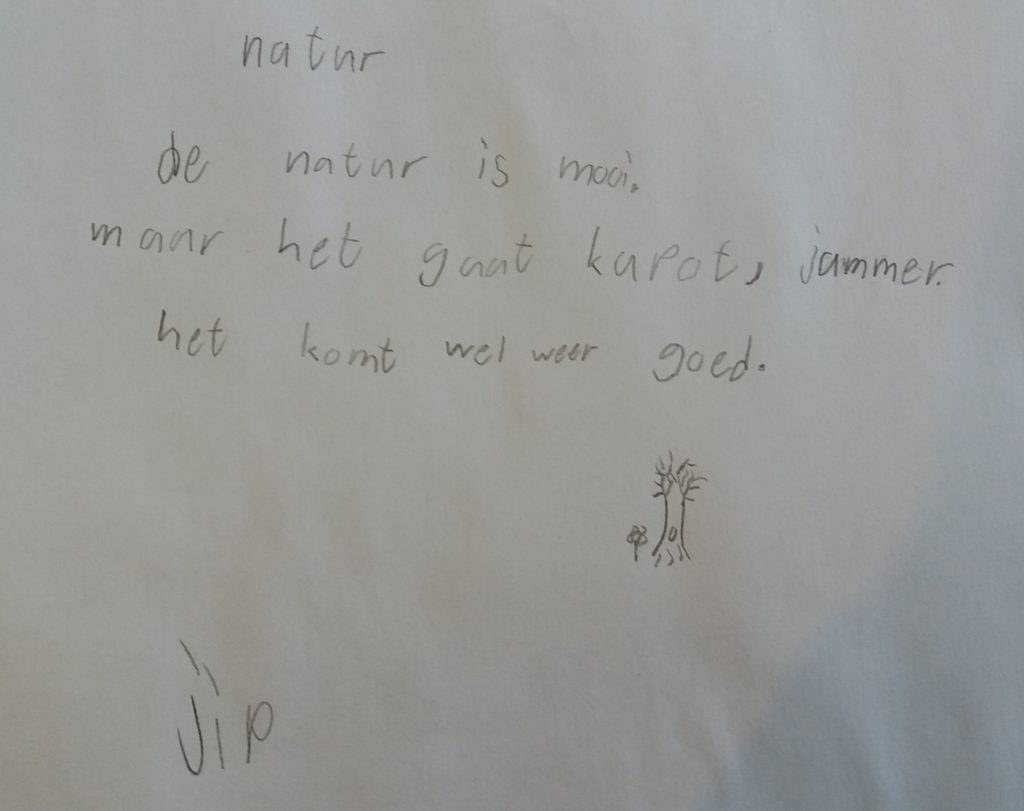 natur
de natur is mooi.
maar het gaat kapot, jammer.
het komt wel weer goed.
Jip